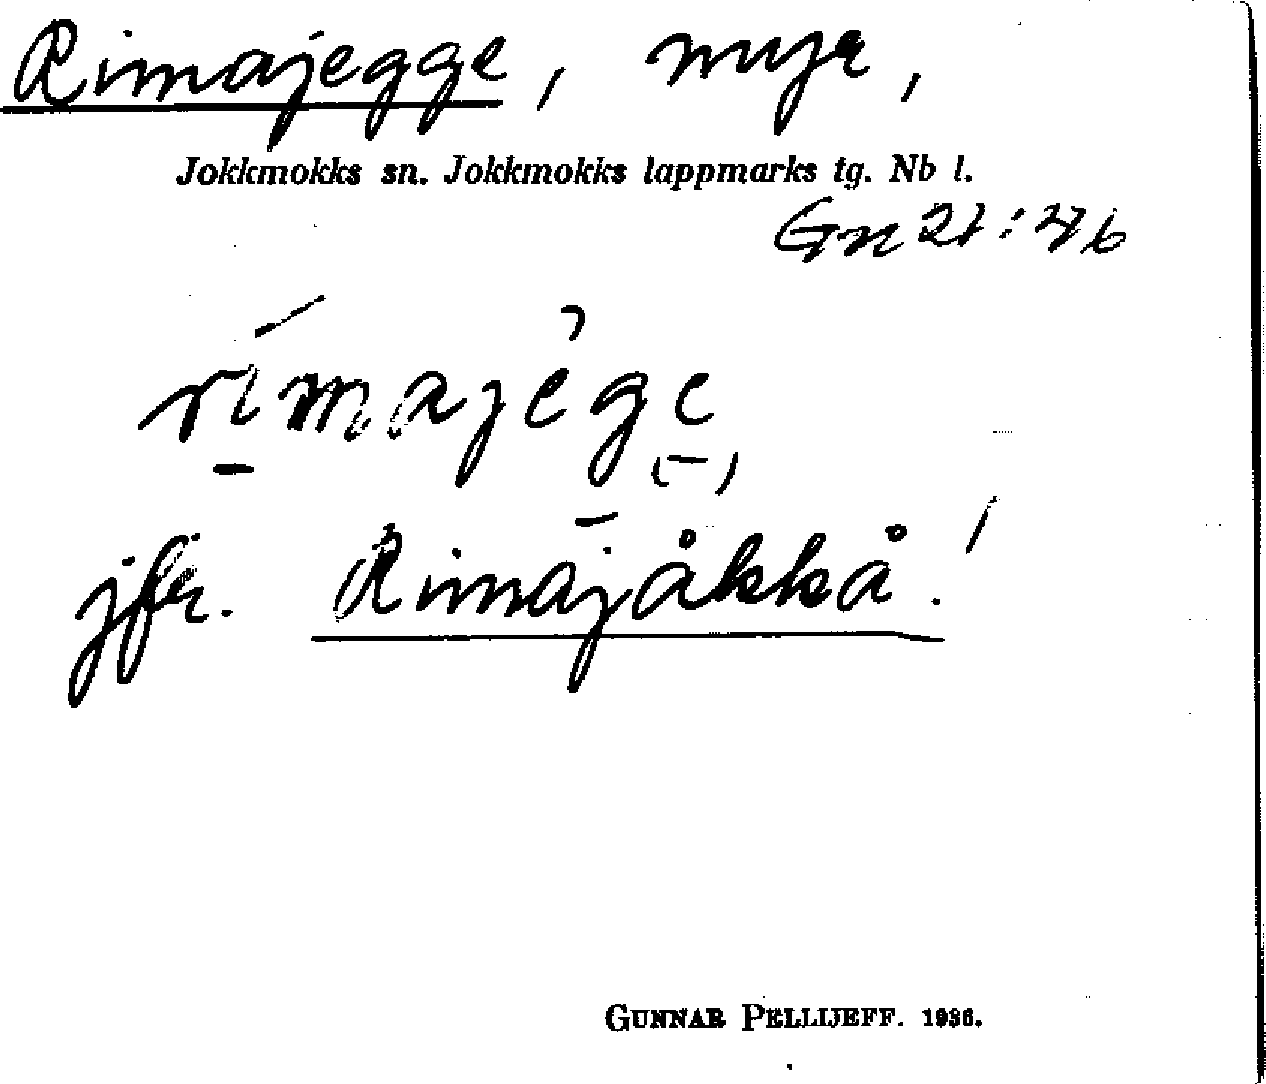 Rimajegge, myr,
Jokkmokks sn. Jokkmokks lappmarks tg. Nb l.
Gn 21:46
rimajege
jfr. Rimajåkkå!
GUNNAR PELLIJEFF. 1936.